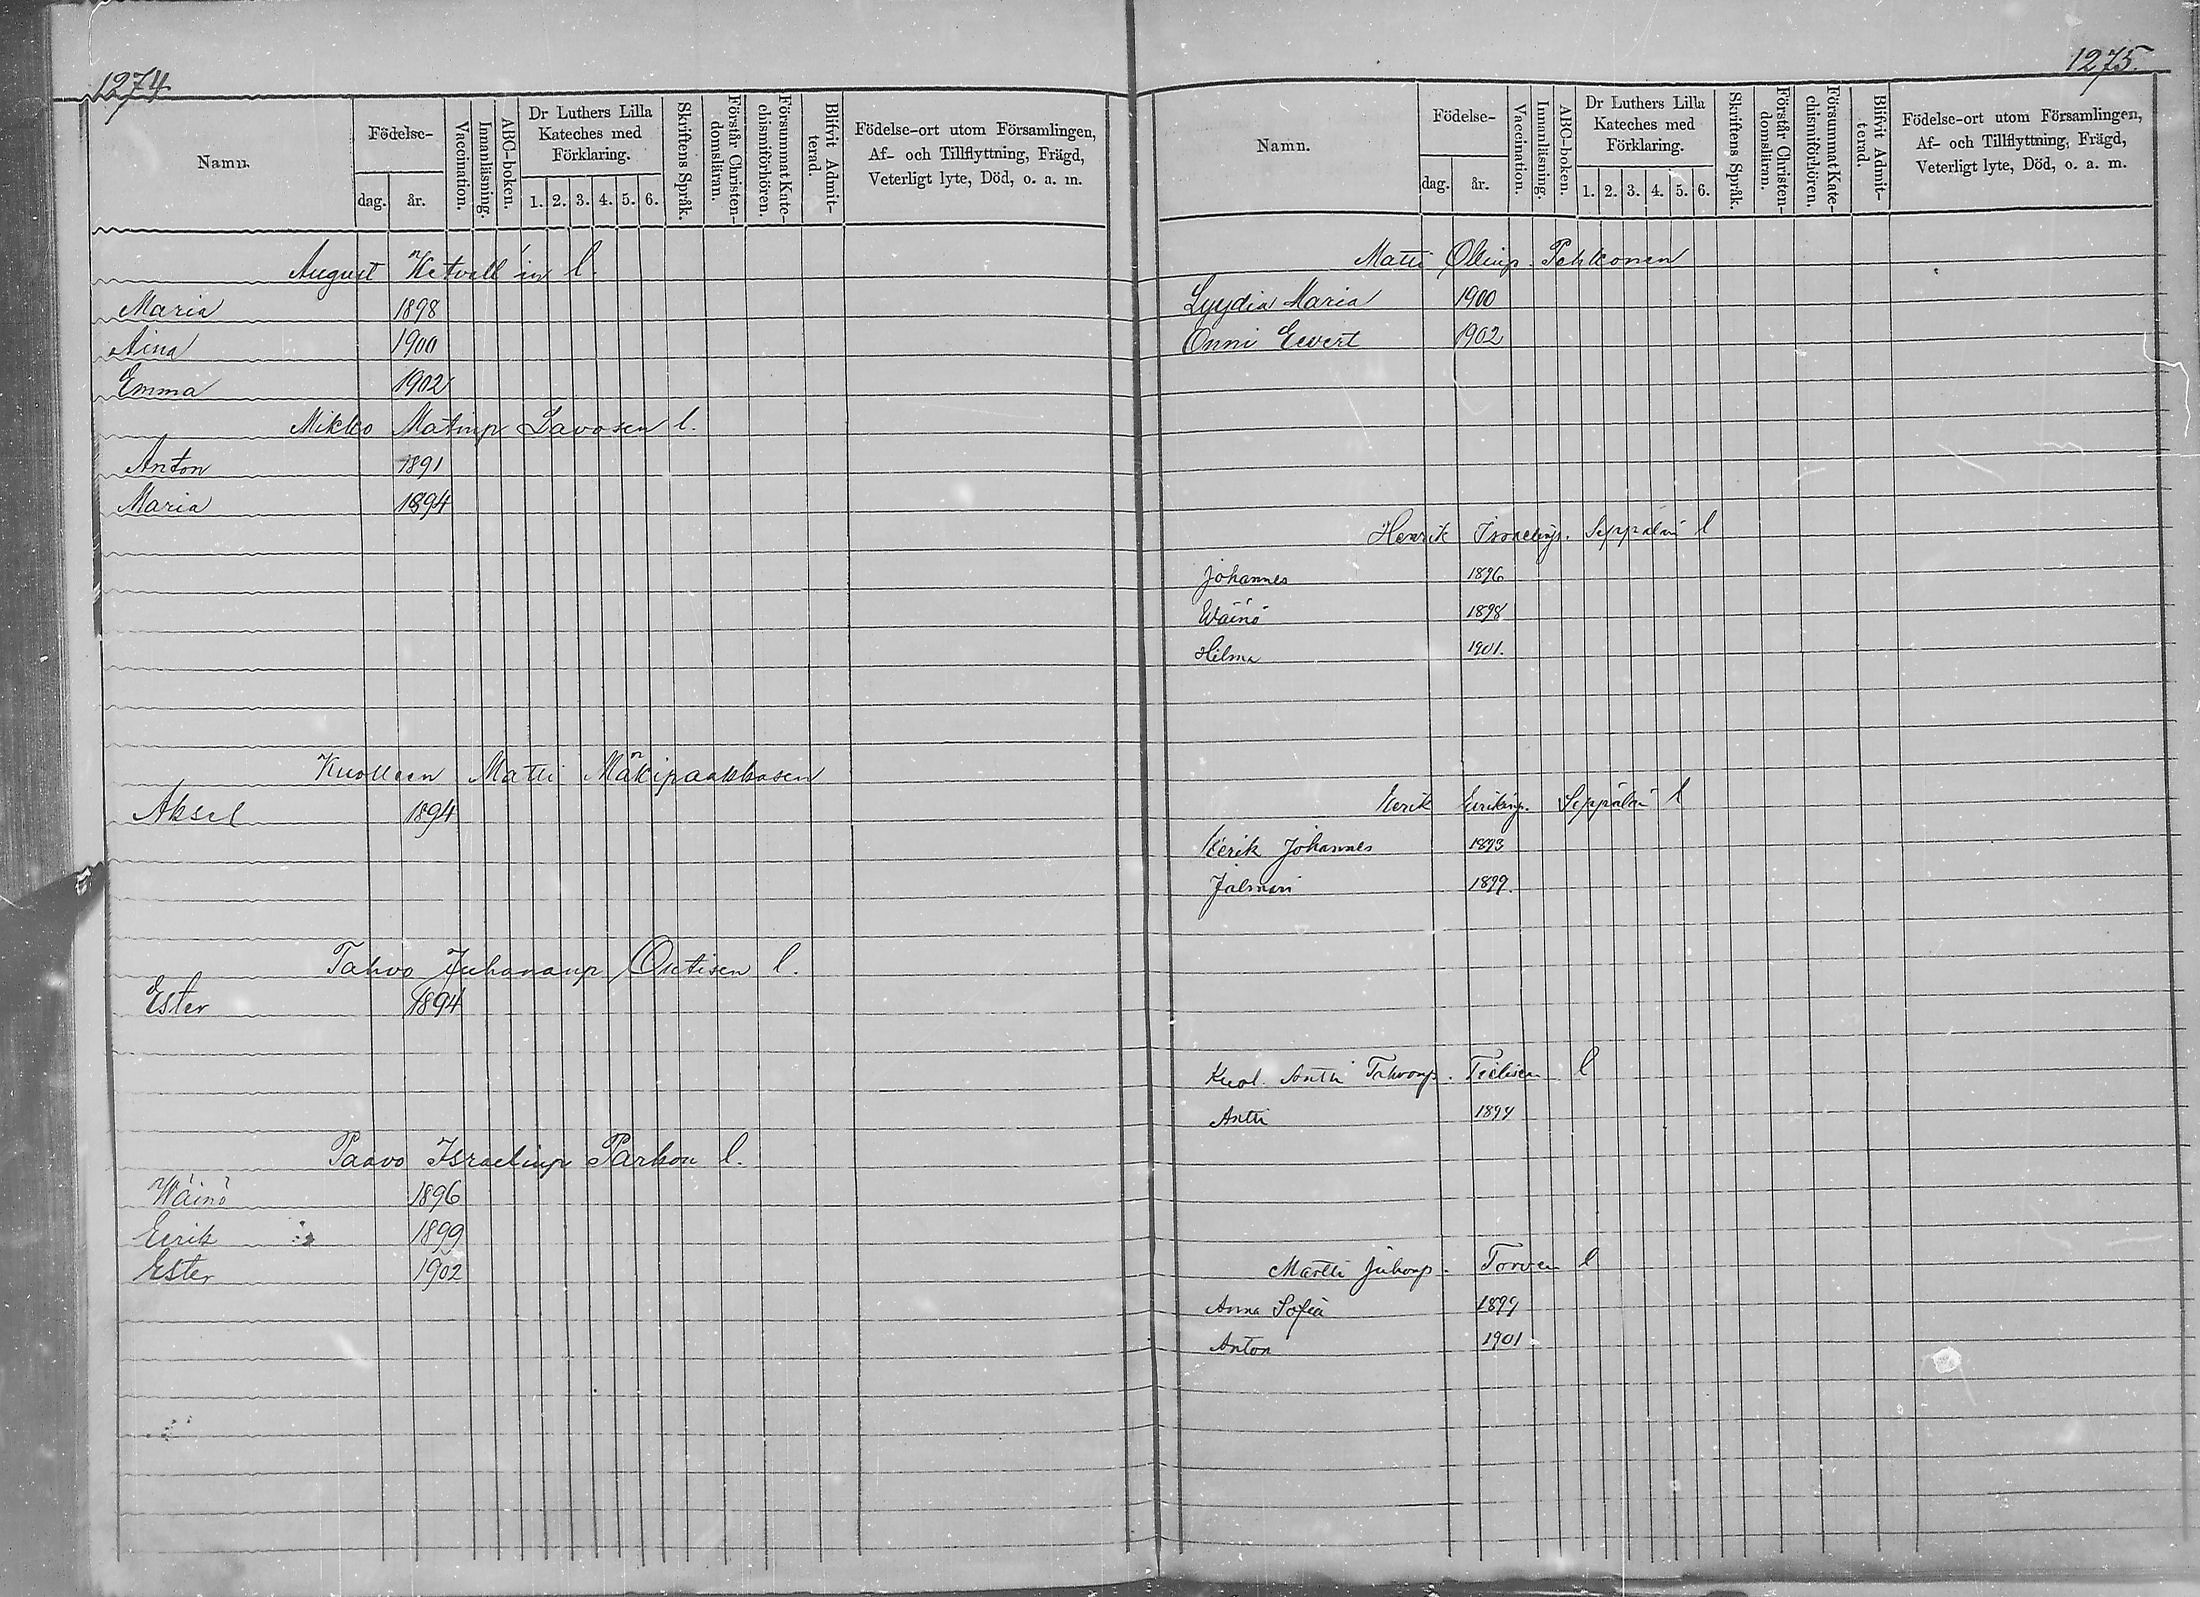 1274
Namn.
Födelse-
dag.
år.
Vaccination.
Innanläsning.
ABC-boken.
Dr Luthers Lilla
Kateches med
Förklaring.
1. 2. 3. 4. 5. 6.
Skriftens Språk.
Förstår Christen-
domsläran.
Försummat Kate-
chismiförhören.
Blifvit Admit-
terad.
Födelse-ort utom Församlingen,
Af- och Tillflyttning, Frägd,
Veterligt lyte, Död, o. a. m.
August Ketvall'in l.
Maria 1898
Aina 1900
Emma 1902
Mikko Matinp Savosen l.
Anton 1891
Maria 1894
Kuolleen Matti Mäkipaakkosen
Aksel 1894
Tahvo Juhananp Outisen l.
Ester 1894
Paavo Israelinp Parkon l.
Wäinö 1896
Eerik 1899
Ester 1902
1275.
Namn.
Födelse-
dag.
år.
Vaccination.
Innanläsning.
ABC-boken.
Dr Luthers Lilla
Kateches med
Förklaring.
1. 2. 3. 4. 5. 6.
Skriftens Språk.
Förstår Christen-
domsläran.
Försummat Kate-
chismiförhören.
Blifvit Admit-
terad.
Födelse-ort utom Församlingen,
Af- och Tillflyttning, Frägd,
Veterligt lyte, Död, o. a. m.
Matti Ollinp. Pehkonen
Lyydia Maria 1900
Onni Eevert 1902
Henrik Israelinp. Seppälän l
Johannes 1896
Wäinö 1898
Hilma 1901.
Eerik Eerikinp. Seppälän l
Eerik Johannes 1893
Jalmari 1899.
Kuol. Antti Tahvonp. Tielisen l
Antti 1894
Martti Juhonp. Torven l
Anna Sofia 1899
Anton 1901